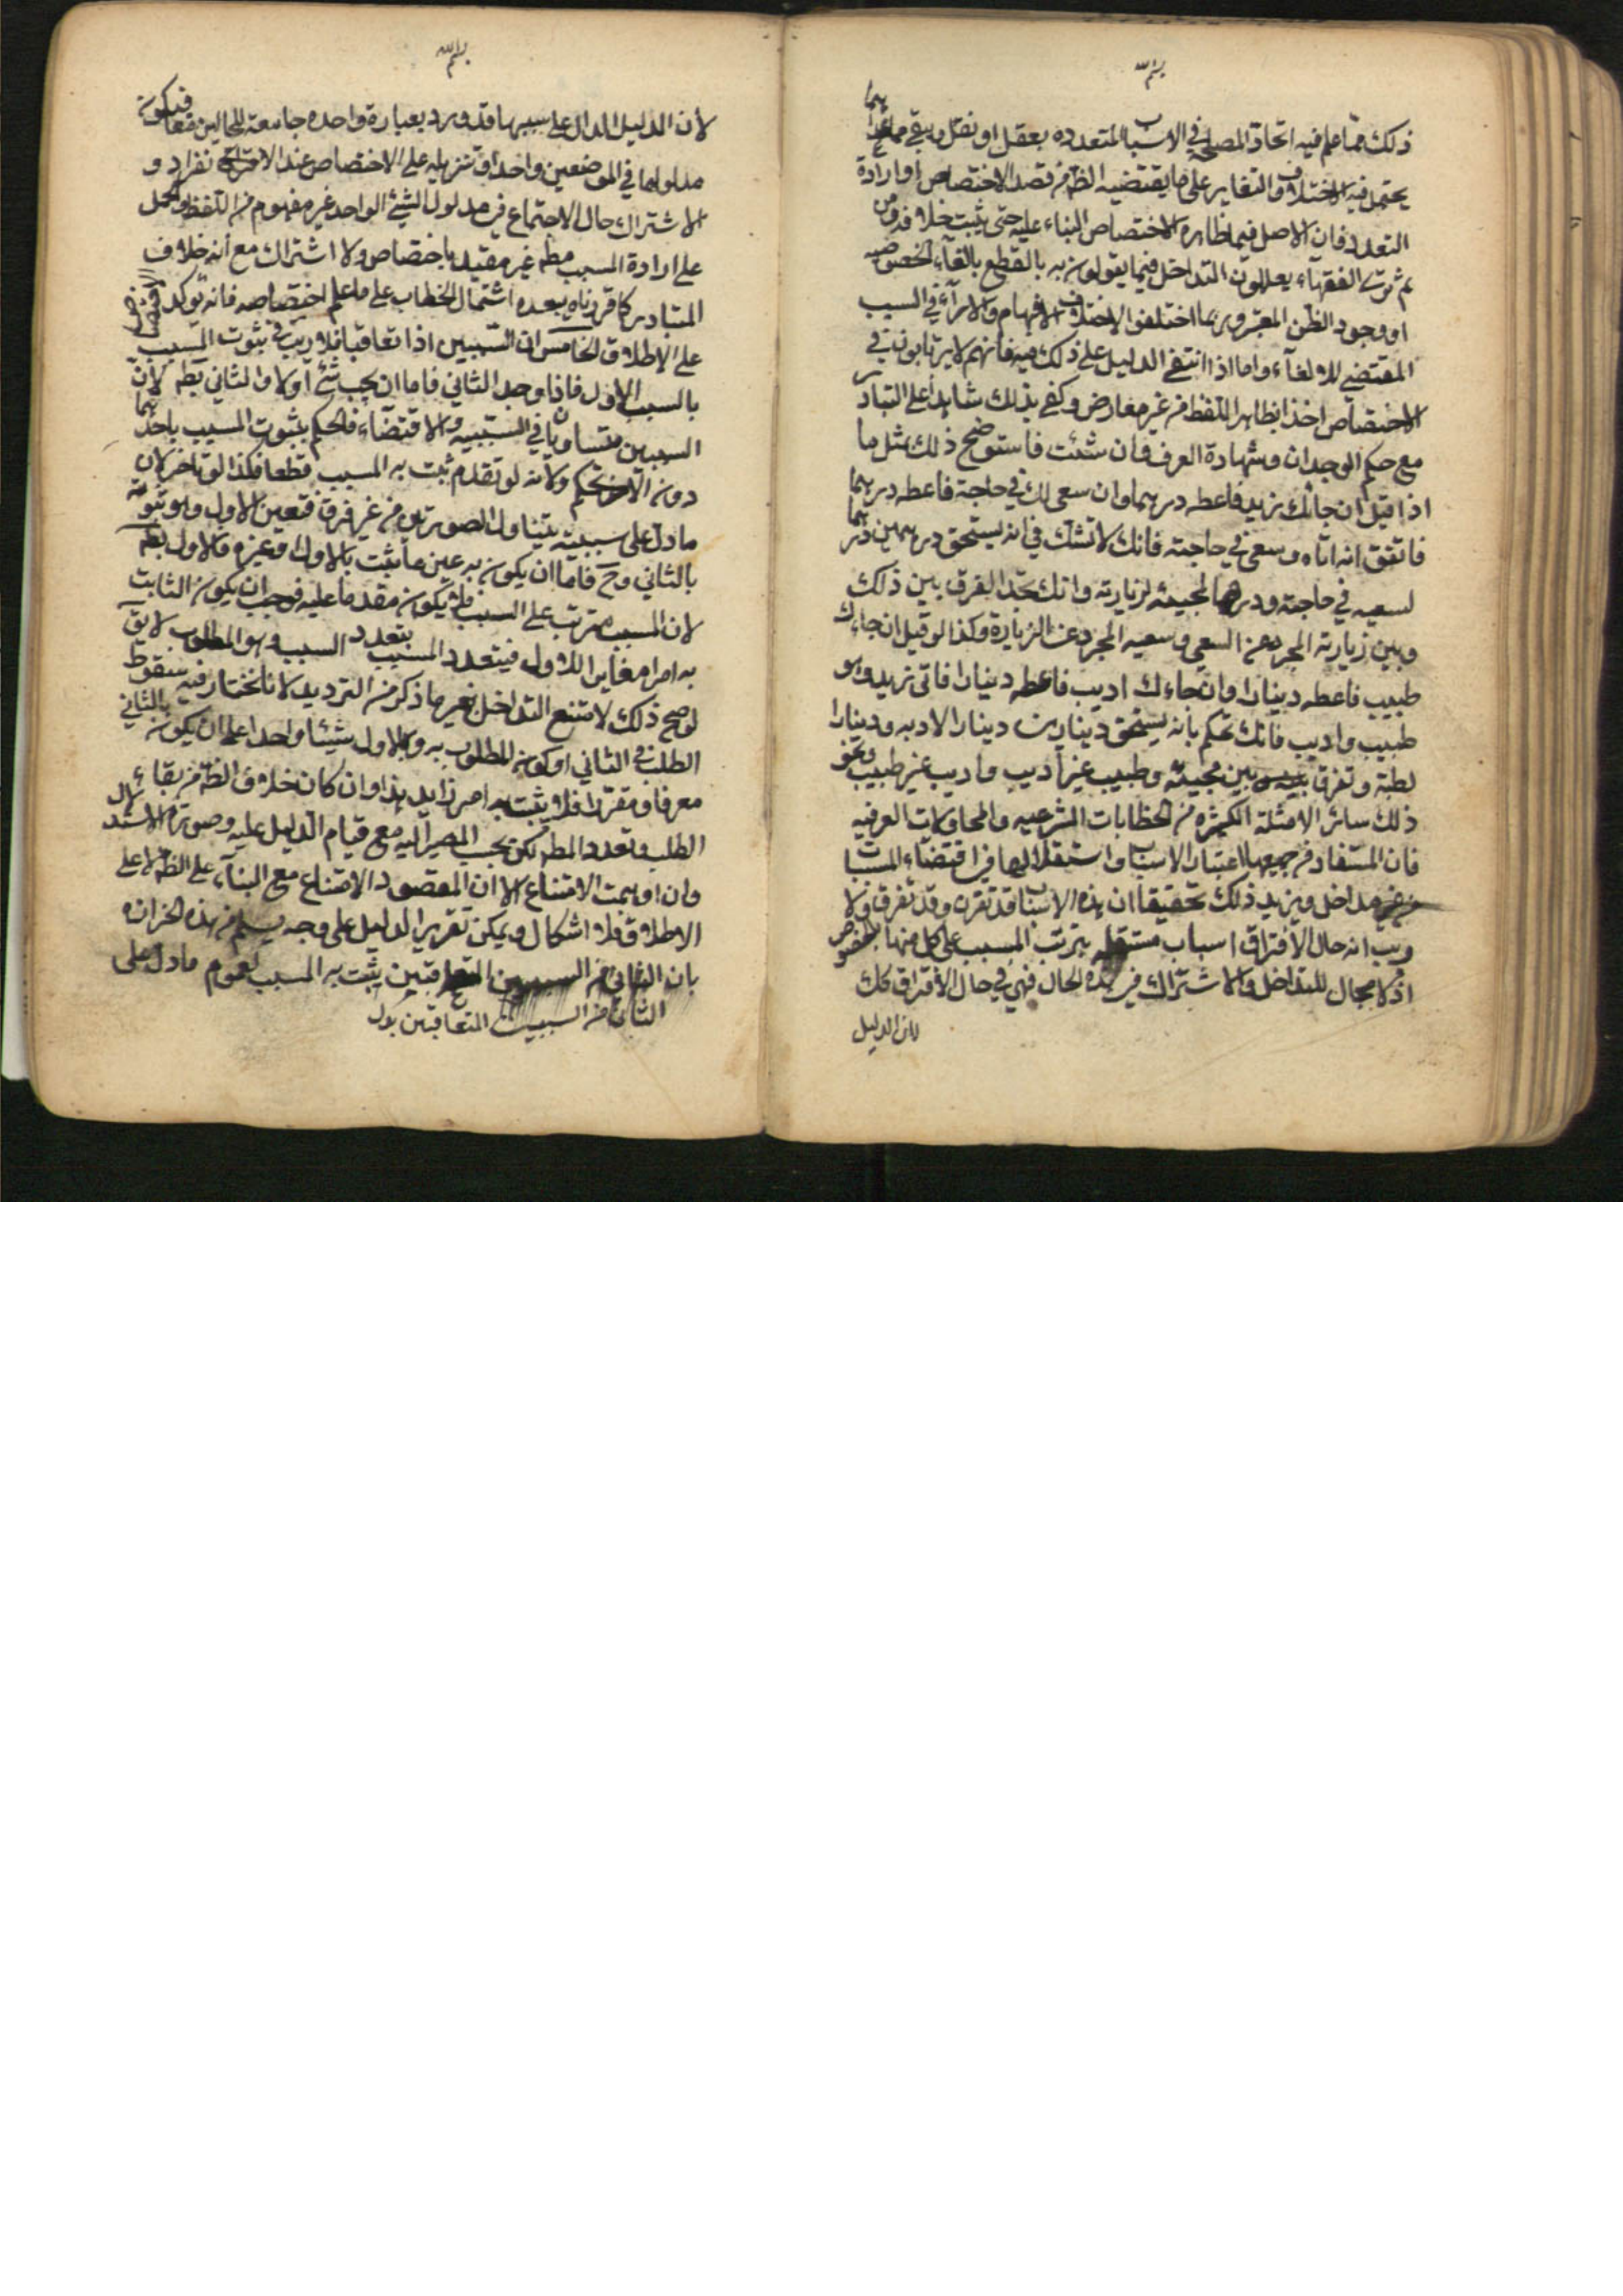 بسم الله
ذلك مما علم فيه اتحاد المصلحة في الاسباب المتعدده بعقل او نقل وبقي ما عداهما
يحتمل فيه الاختلاف والتغاير على ما يقتضيه الظ من قصد الاختصاص أو ارادة
التعدد فان الاصل فيما ظاهره الاختصاص البناء عليه حتى يثبت خلافه ومن
ثم ترى الفقهآء يعللون التداخل فيما يقولون به بالقطع بالغآء الخصوصيه
او وجود الظن المعتبر وربما اختلفوا لاختلاف الافهام والارآء في السبب
المقتضي للالغآء واما اذا انتفى الدليل على ذلك فيه فانهم لا يرتابون في
الاختصاص اخذا بظاهر اللفظ من غير معارض وكفى بذلك شاهدا على التبادر
مع حكم الوجدان وشهادة العرف وان شئت فاستوضح ذلك بمثل ما
اذا قيل ان جائك زيد فاعطه درهما وان سعى لك في حاجة فاعطه درهما
فاتفق انه اتاه وسعى في حاجته فانك لا تشك في انه يستحق درهمين درهما
لسعيه في حاجته ودرهما لمجيئه لزيارته وانك تجد الفرق بين ذلك
وبين زيارته المجرد عن السعي وسعيه المجرد عن الزيارة وكذا لو قيل ان جاءك
طبيب فاعطه دينارا وان جاءك اديب فاعطه دينارا فاتى زيد وهو
طبيب واديب فانك تحكم بانه يستحق دينارين دينارا لادبه ودينارا
لطبه وتفرق بين مجيئه وطبيب غير أديب واديب غير طبيب ونحو
ذلك سائر الامثلة الكثيره من الخطابات الشرعيه والمحاورات العرفيه
فان المستفاد من جميعها اعتبار الاسباب واستقلالها في اقتضاء المسببات
من غير تداخل ويزيد ذلك تحقيقا ان هذه الاسباب قد تقترن وقد تفترق ولا
ريب انه حال الافتراق اسباب مستقله يترتب المسبب على كل منها بالخصوص
اذ لا مجال للتداخل والاشتراك في هذه الحال فهي في حال الاقتران كك
لان الدليل
بسم الله
لأن الدليل الدال على سببيتها قد ورد بعبارة واحده جامعة للحالين معا فيكون
مدلولها في الموضعين واحدا وتنزيله على الاختصاص عند الانفراد و
الاشتراك حال الاجتماع في مدلول الشئ الواحد غير مفهوم من اللفظ والحمل
على ارادة المسبب مطه غير مقيد باختصاص ولا اشتراك مع أنه خلاف
المتبادر كما قررناه يبعده اشتمال الخطاب على ما علم اختصاصه فانه يؤكد
على الاطلاق الخامس ان السببين اذا تعاقبا فلا ريب في ثبوت المسبب
بالسبب الاول فاذا وجد الثاني فاما ان يجب شئ أو لا والثاني بط لان
السببين متساويان في السببيه والاقتضاء فالحكم بثبوت المسبب باحدهما
دون الآخر تحكم ولأنه لو تقدم ثبت به المسبب قطعا فكذا لو تاخر لان
ما دل على سببيته يتناول الصورتين من غير فرق فتعين الاول وهو ثبوته
بالثاني وح فاما ان يكون به عين ما يثبت بالاول او غيره والاول بط
لان المسبب مترتب على السبب فلا يكون مقدما عليه فوجب ان يكون الثابت
به امرا مغايرا للاول فيتعدد المسبب بتعدد السبب وهو المطلوب لا يق
لو صح ذلك لامتنع التداخل بغير ما ذكر من الترديد لانا نختار فيه سقوط
الطلب في الثاني او كون المطلوب به وبالاول شيئا واحدا على ان يكون بالثاني
معرفا ومقررا فلا يثبت به امر زايد هذا وان كان خلاف الظ من بقاء
الطلب وتعدد المط لكن يجب المصير اليه مع قيام الدليل عليه وصورة الاستدلال
وان اوهمت الامتناع الا ان المقصود الامتناع مع البنآء على الظ لا على
الاطلاق فلا اشكال ويمكن تقرير الدليل على وجه يسلم من هذه الحزازه
بان الثاني من السببين المتعاقبين يثبت به المسبب لعموم ما دل على
الثاني من السببين المتعاقبين بدل